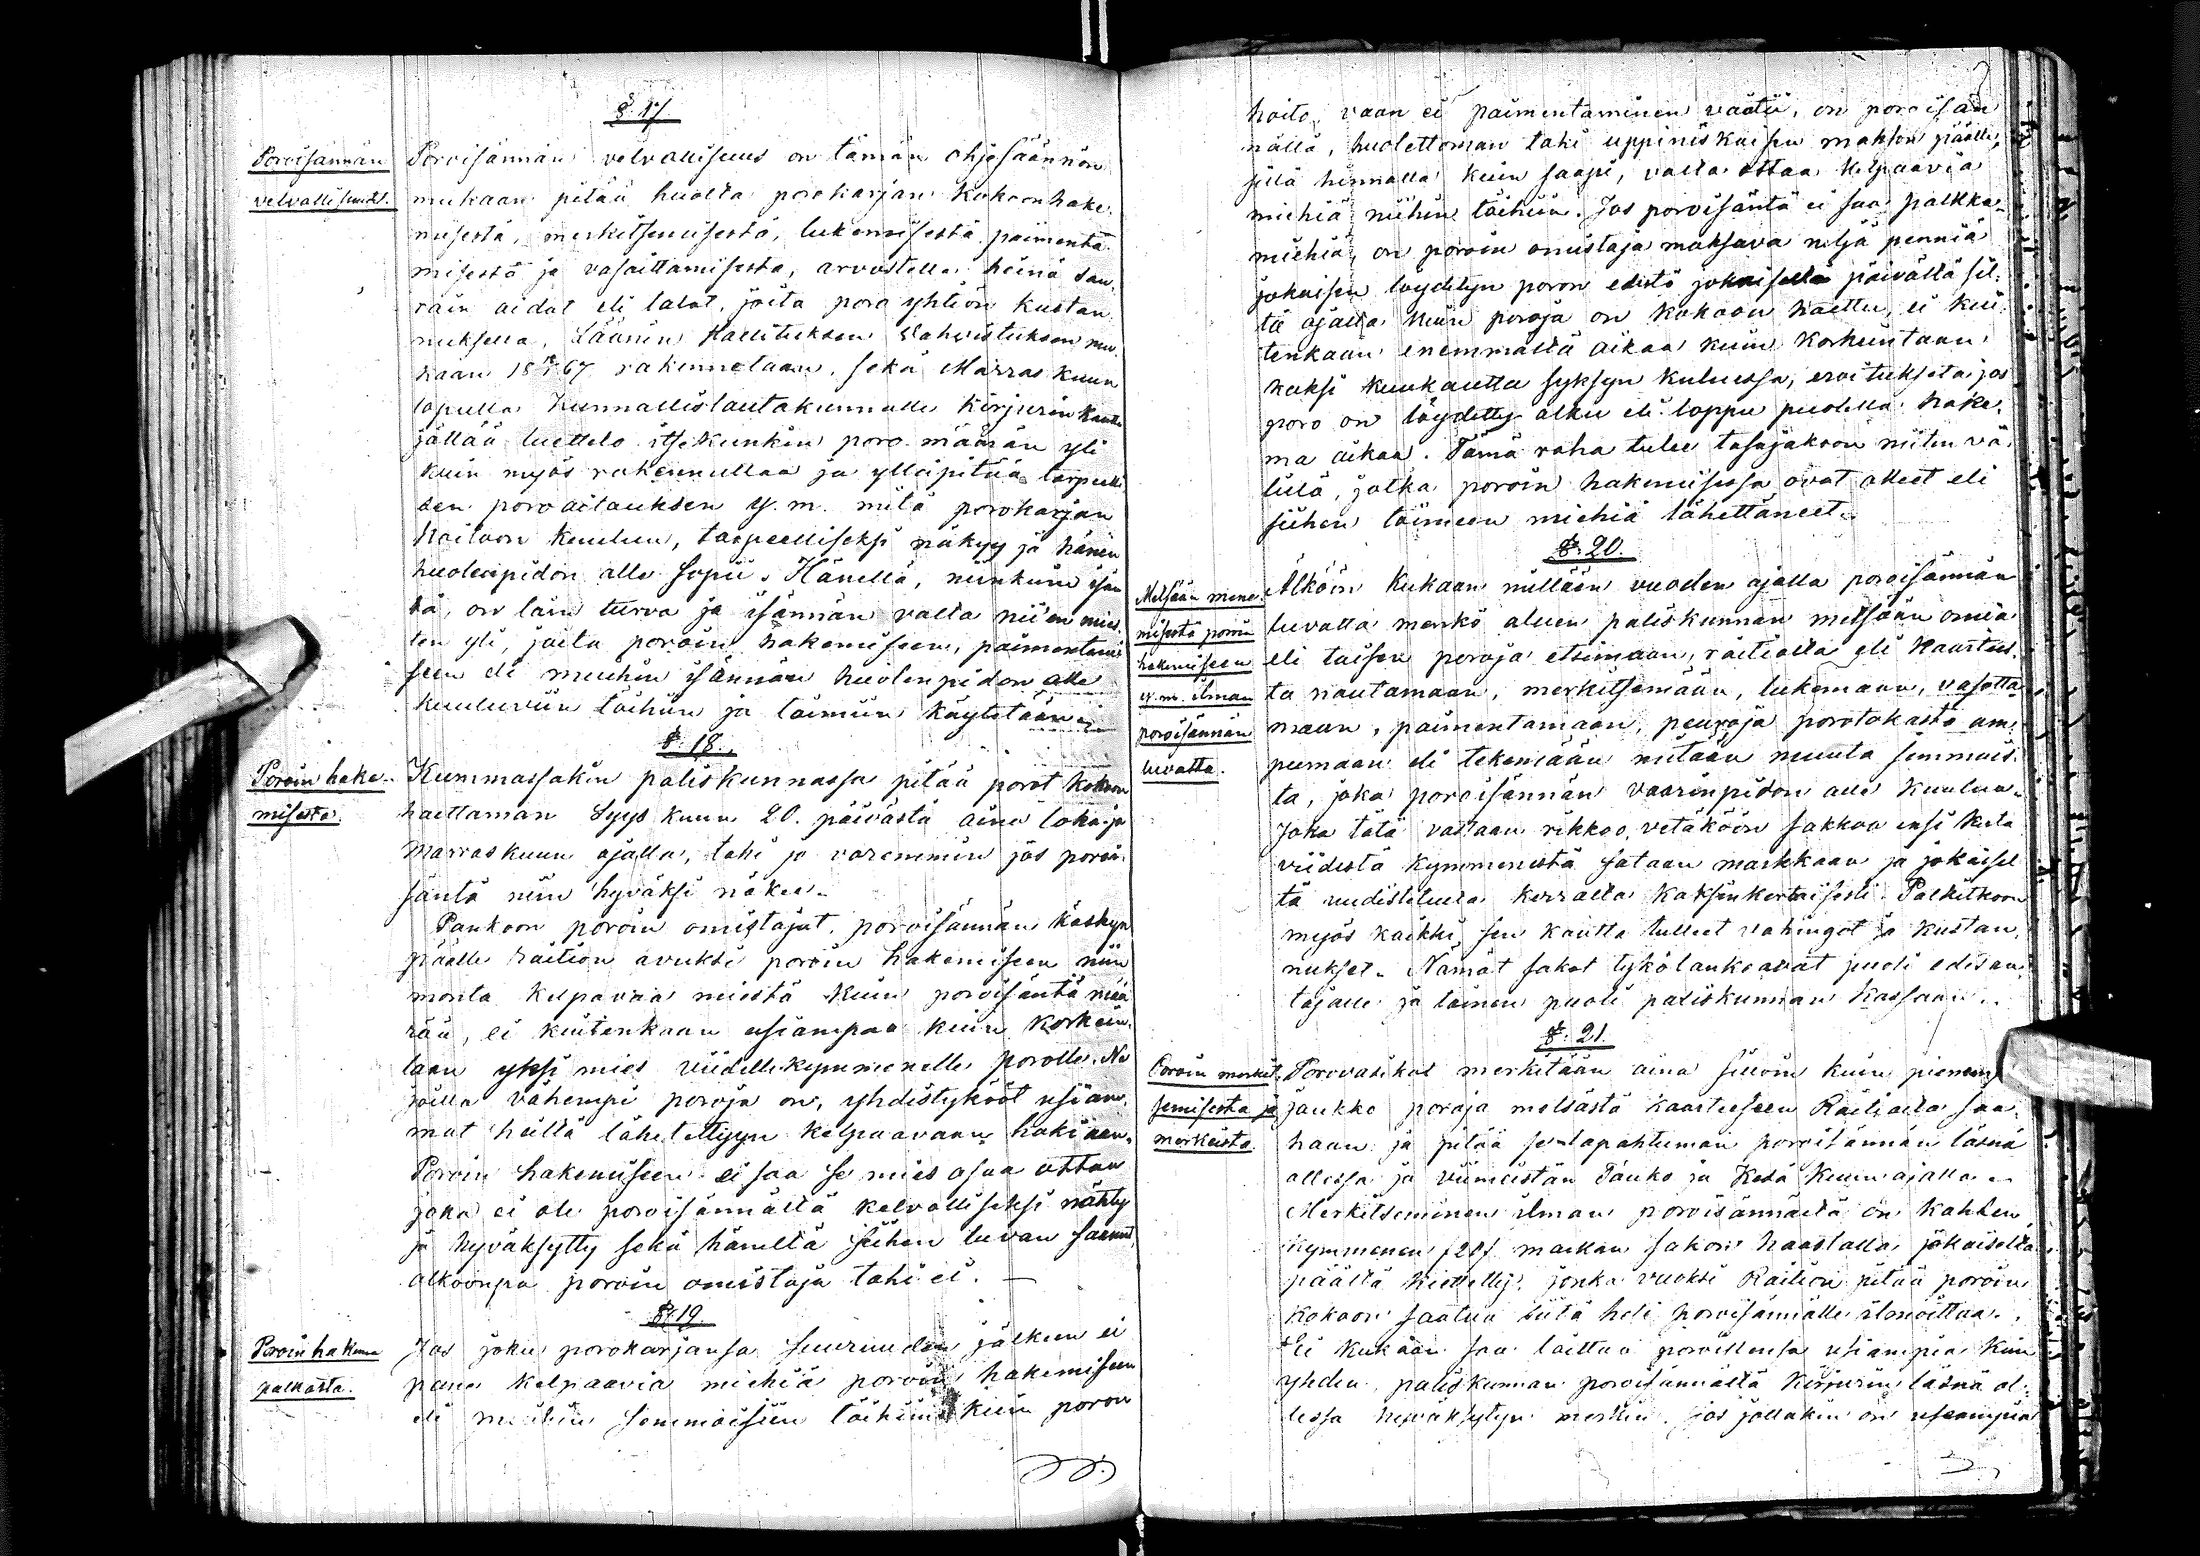 §. 17.
Poroisännän
velvallisuudet.
Poroisännän velvallisuus on tämän ohjesäännön
mukaan pitää huolta porokarjan kokoonhake-
misesta, merkitsemisestä, lukemisesta paimenta-
misesta ja vasaittamisesta, arvostella heinä
aidat eli talat, joita poro yhtiön kustan-
nuksella, Läänin Hallituksen Vahvistuksen mu-
kaan 18 67 rakennetaan, sekä Marraskuun
lopulla Kunnallislautakunnalle kirjurin kautta
jättää luettelo itsekunkin poro määrän yli
kuin myös rakennuttaa ja ylläpitää tarpeelli-
sen poroaitauksen y. m. mitä porokarjan
hoitoon kuuluu, tarpeelliseksi näkyy ja hänen
huolenpidon alle sopii. Hänellä, niinkuin isän-
tä, on lain turva ja isännän valta niiden mies-
ten yli, joita poroin hakemiseen, paimentami-
seen eli muuhin isännän huolenpidon alle
kuuluviin töihin ja toimiin käytetään.
§. 18.
Poroin hake-
misesta.
Kummassakin paliskunnassa pitää porot kokoon
haettaman Syys kuun 20. päivästä aina loka ja
Marraskuun ajalla, tahi jo varemmin jos poroi-
säntä niin hyväksi näkee.
Pankoon poroin omistajat, poroisännän käskyn
päälle Raition avuksi poroin hakemiseen niin
monta kelpavaa miestä kuin poroisäntä mää-
rää, ei kuitenkaan usiampaa kuin korkein-
taan yksi mies viidellekymmenelle porolle. Ne
joilla vähempi poroja on, yhdistykööt usiam-
mat heillä lähetettyyn kelpaavaan hakiaan.
Poroin hakemiseen ei saa se mies osaa ottaa
joka ei ole poroisännältä kelvolliseksi nähty
ja hyväksytty sekä häneltä siihen luvan saanut,
olkoonpa poroin omistaja tahi ei. —
§. 19.
Poroin hakema
palkasta.
Jos joku porokarjansa suuruuden jälkeen ei
pane kelpaavia miehiä poroin hakemiseen
eli muihin semmoisiin töihin kuin poron
hoito, vaan ei paimentaminen vaatii, on poroisän-
nällä, huolettoman tahi uppiniskaisen makson päälle,
sillä hinnalla kuin saapi, valta ottaa kelpaavia
miehiä niihin töihin. Jos poroisäntä ei saa palkka-
miehiä, on poroin omistaja maksava neljä penniä
jokaisen löydetyn poron edestä jokaiselta päivältä sil-
tä ajalta kuin poroja on kokoon haettu, ei kui-
tenkaan enemmältä aikaa kuin korkeintaan
kaksi kuukautta syksyn kuluessa, eroituksetta jos
poro on löydetty alku eli loppu puolella hake-
ma aikaa. Tämä raha tulee tasajakoon niiten vä-
lillä, jotka poroin hakemisessa ovat olleet eli
siihen toimeen miehiä lähettäneet.
§. 20.
Metsään mene-
misestä poroin
hakemiseen
y. m. ilman
poroisännän
luvatta.
Älköön kukaan millään vuoden ajalla poroisännän
luvatta menkö aluen paliskunnan metsään omia
eli toisen poroja etsimään, raitiolla eli kaartees-
ta nautamaan, merkitsemään, lukemaan, vasotta-
maan, paimentamaan, peuroja porotokasta am-
pumaan eli tekemään mitään muuta semmois-
ta, joka poroisännän vaarinpidon alle kuuluu.
Joka tätä vastaan rikkoo, vetäköön sakkoa ensi kerta
viidestä kymmenestä sataan markkaan ja jokaisel-
tä uudistetulta kerralta kaksinkertaisesti. Palkitkoon
myös kaikki sen kautta tulleet vahingot ja kustan-
nukset. Nämät sakot tykölankeavat puoli edesan-
tajalle ja toinen puoli paliskunnan kassaan.
§. 21.
Poroin merkit-
semisestä ja
merkeistä.
Porovasikat merkitään aina silloin kuin pienempi
joukko poroja metsästä kaarteeseen Raitiolta saa-
haan ja pitää se tapahtuman poroisännän läsnä
ollessa ja viimeistän Touko ja Kesä kuun ajalla.
Merkitseminen ilman poroisännältä on kahden
kymmenen /20/ markan sakon haastolla jokaiselta
päältä kielletty, jonka vuoksi Raition pitää poroin
kokoon saatua siitä heti poroisännälle ilmoittaa.
Ei kukaan saa laittaa poroillensa usiampia kuin
yhden paliskunnan poroisännältä kirjurin läsnä ol-
lessa hyväksytyn merkin. Jos jollakin on useampia